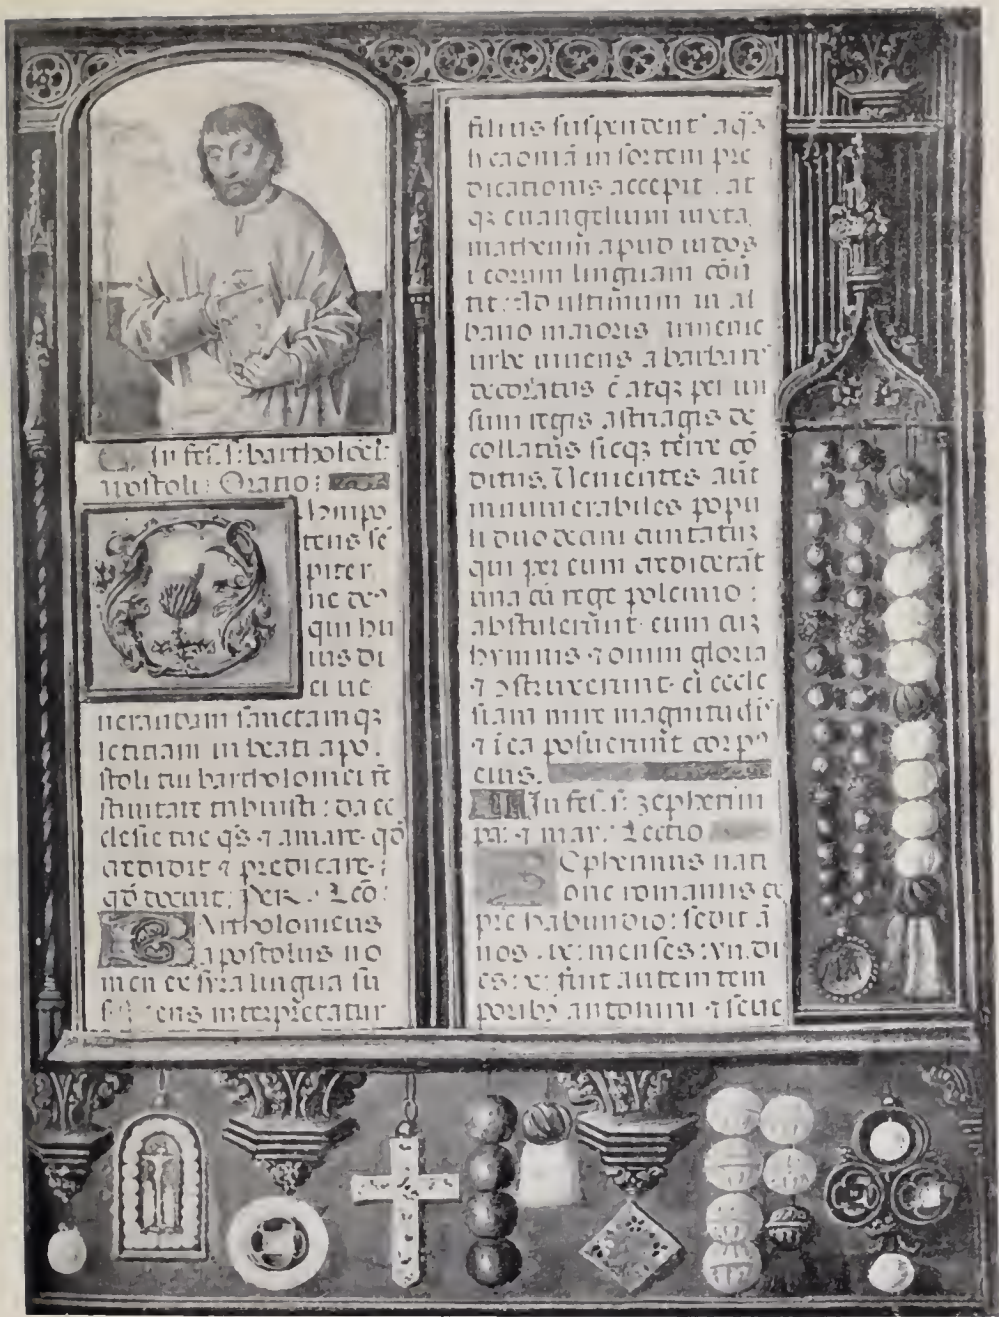 In fes. s. bartholoei
apostoli. Oratio:
mnipo
tens se
piter
ne de⁹
qui hu
ius di
ei ue
nerandam sanctamqꝫ
letitiam in beati apo
stoli tui bartholomei fe
stiuitate tribuisti: da ec
clesie tue qs ⁊ amare qđ
credidit ⁊ predicare
qđ docuit. Per. Lcō:
Artholomeus
apostolus no
men ex syra lingua su
ens interpretatur
filius suspendent⁹ aqˢ
licaoniā in sortem pre
dicationis accepit. at
qꝫ euangelium iuxta
matheum apud indos
i eorum linguam
tit: ad ultimum in al
bano maioris armenie
urbe uiuens a barbaris
decoriatus ē atqꝫ per ius
sum regis astragis de
collatus sicqꝫ terre cō
ditus. Uenientes aūt
innumerabiles popu
li duodecim ciuitatum
qui per eum crediderāt
una cū rege polemio:
abstulerunt eum cum
hymnis ⁊ omni gloria
⁊ ꝯstruxerunt ei eccle
siam mire magnitudīs
⁊ i ea posuerunt corp⁹
eius.
In fes. s. zepherini
pa: ⁊ mar: Lectio
Epherinus nati
one romanus ex
pre habundio: sedit ā
nos .ix: menses: vii. di
es: x: fuit autem tem
poribꝰ antonini ⁊ seue